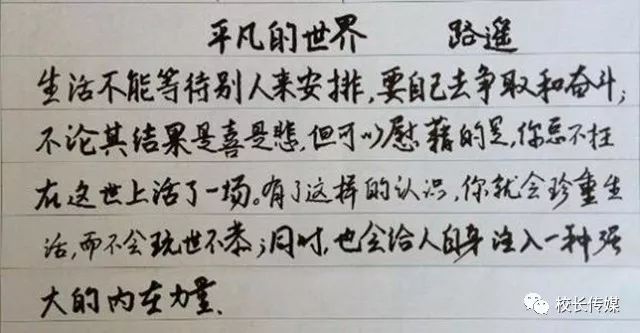 平凡的世界 路遥
生活不能等待别人来安排，要自己去争取和奋斗；
不论其结果是喜是悲，但可以慰藉的是，你总不枉
在这世上活了一场。有了这样的认识，你就会珍重生
活，而不会玩世不恭；同时，也会给人自身注入一种强
大的内在力量.
校长传媒